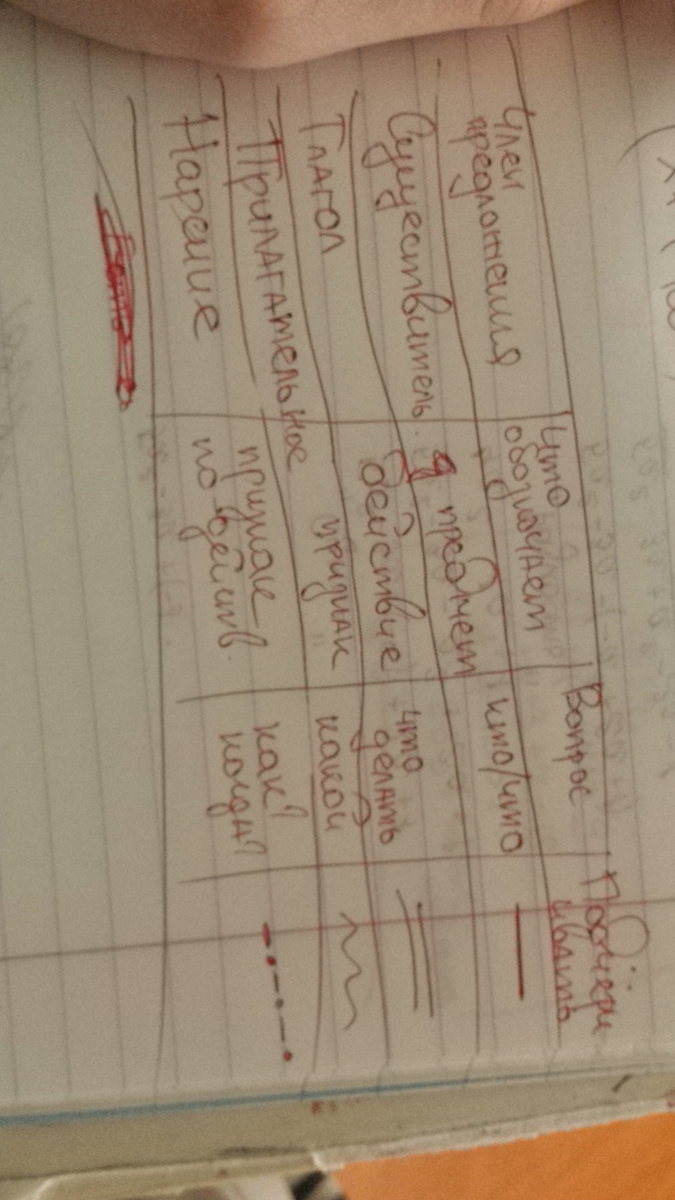 Член предложения
Что обозначает
Вопрос
Подчёркивать
Существитель.
предмет
кто/что
Глагол
действие
что делать
Прилагательное
признак
какой
Наречие
признак по действ.
как? когда?